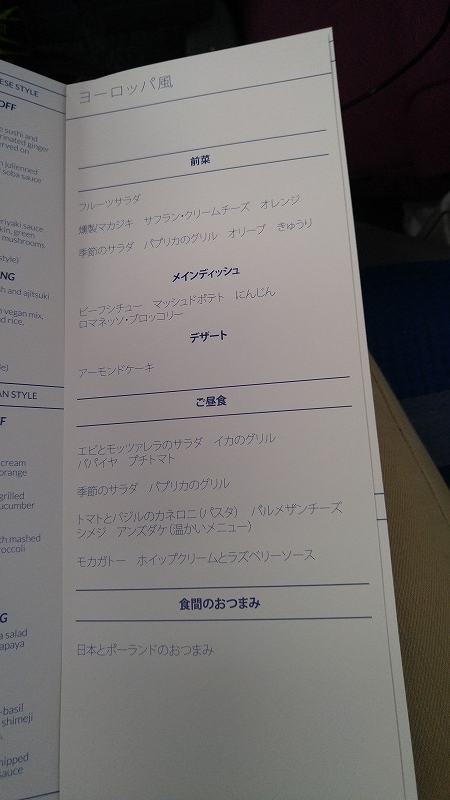 ESE STYLE
OFF
e sushi and
rinated ginger
erved on
n julienned
soba sauce
eriyaki sauce
kin, green
mushrooms
style)
NG
sh and ajitsuki
n vegan mix,
d rice,
le)
AN STYLE
F
cream
orange
grilled
ucumber
th mashed
roccoli
G
a salad
apaya
-basil
shimeji
hipped
sauce
ヨーロッパ風
前菜
フルーツサラダ
燻製マカジキ サフラン・クリームチーズ オレンジ
季節のサラダ パプリカのグリル オリーブ きゅうり
メインディッシュ
ビーフシチュー マッシュドポテト にんじん
ロマネッソ・ブロッコリー
デザート
アーモンドケーキ
ご昼食
エビとモッツァレラのサラダ イカのグリル
パパイヤ プチトマト
季節のサラダ パプリカのグリル
トマトとバジルのカネロニ（パスタ） パルメザンチーズ
シメジ アンズダケ（温かいメニュー）
モカガトー ホイップクリームとラズベリーソース
食間のおつまみ
日本とポーランドのおつまみ